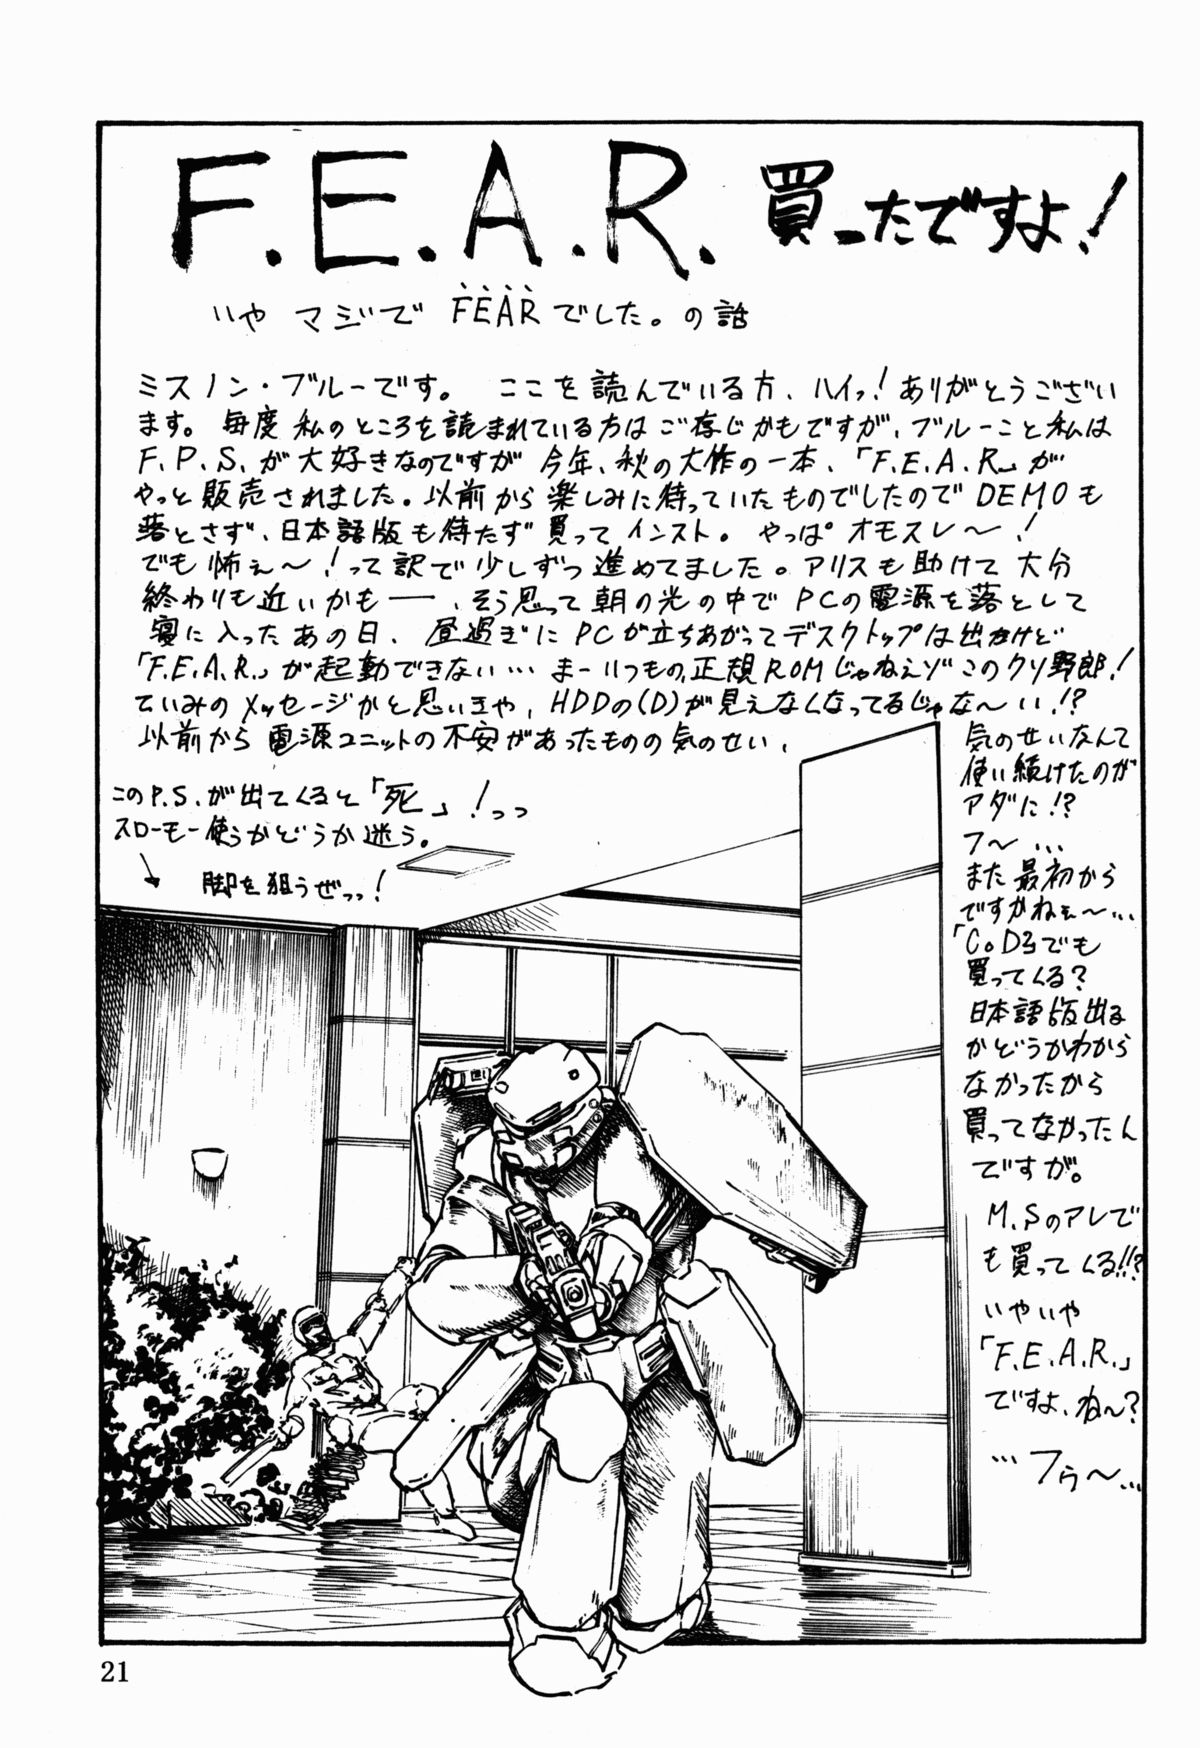 F.E.A.R. 買ったですよ!
いや マジで FEARでした。の話
ミスノン・ブルーです。 ここを読んでいる方、ハイッ!ありがとうござい
ます。毎度 私のところを読まれている方はご存じかもですが、ブルーこと私は
F.P.S.が大好きなのですが 今年、秋の大作の一本、「F.E.A.R」が
やっと販売されました。以前から楽しみに待っていたものでしたので DEMOも
落とさず、日本語版も待たず買ってインスト。やっぱオモスレ〜!
でも怖ぇ〜!って訳で少しずつ進めてました。アリスも助けて大分
終わりも近いかも――、そう思って朝の光の中でPCの電源を落として
寝に入ったあの日、昼過ぎにPCが立ちあがってデスクトップは出たけど
「F.E.A.R.」が起動できない… まーいつもの、正規ROMじゃねえゾこのクソ野郎!
ていみのメッセージかと思いきや、HDDの(D)が見えなくなってるじゃな〜い!?
以前から電源ユニットの不安があったものの気のせい、
気のせいなんて
使い続けたのが
アダに!?
フ〜…
また最初から
ですかねぇ〜…
「CoD」でも
買ってくる?
日本語版出る
かどうかわから
なかったから
買ってなかったん
ですが。
M.Sのアレで
も買ってくる!!?
いやいや
「F.E.A.R.」
ですよ、ね〜?
…フゥ〜…
このP.S.が出てくると「死」!っっ
スローモー使うかどうか迷う。
脚を狙うぜっっ!
21